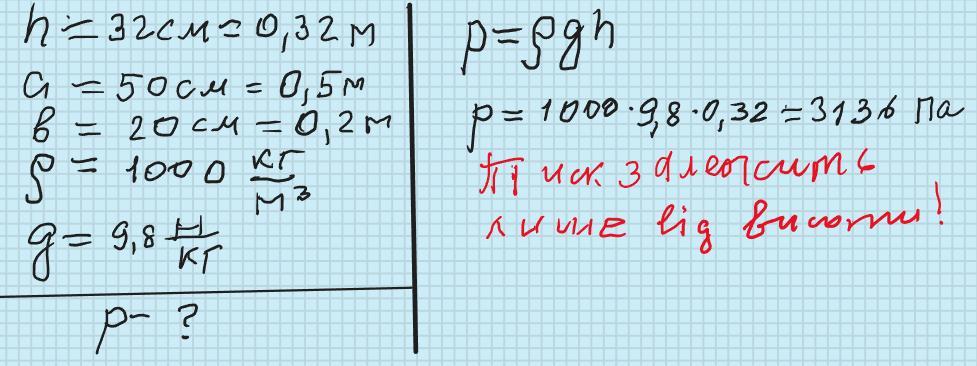 h = 32 см = 0,32 м
a = 50 см = 0,5 м
в = 20 см = 0,2 м
ρ = 1000 кг/м³
g = 9,8 н/кг
p - ?
p = ρgh
p = 1000 · 9,8 · 0,32 = 3136 Па
Тиск залежить
лише від висоти!